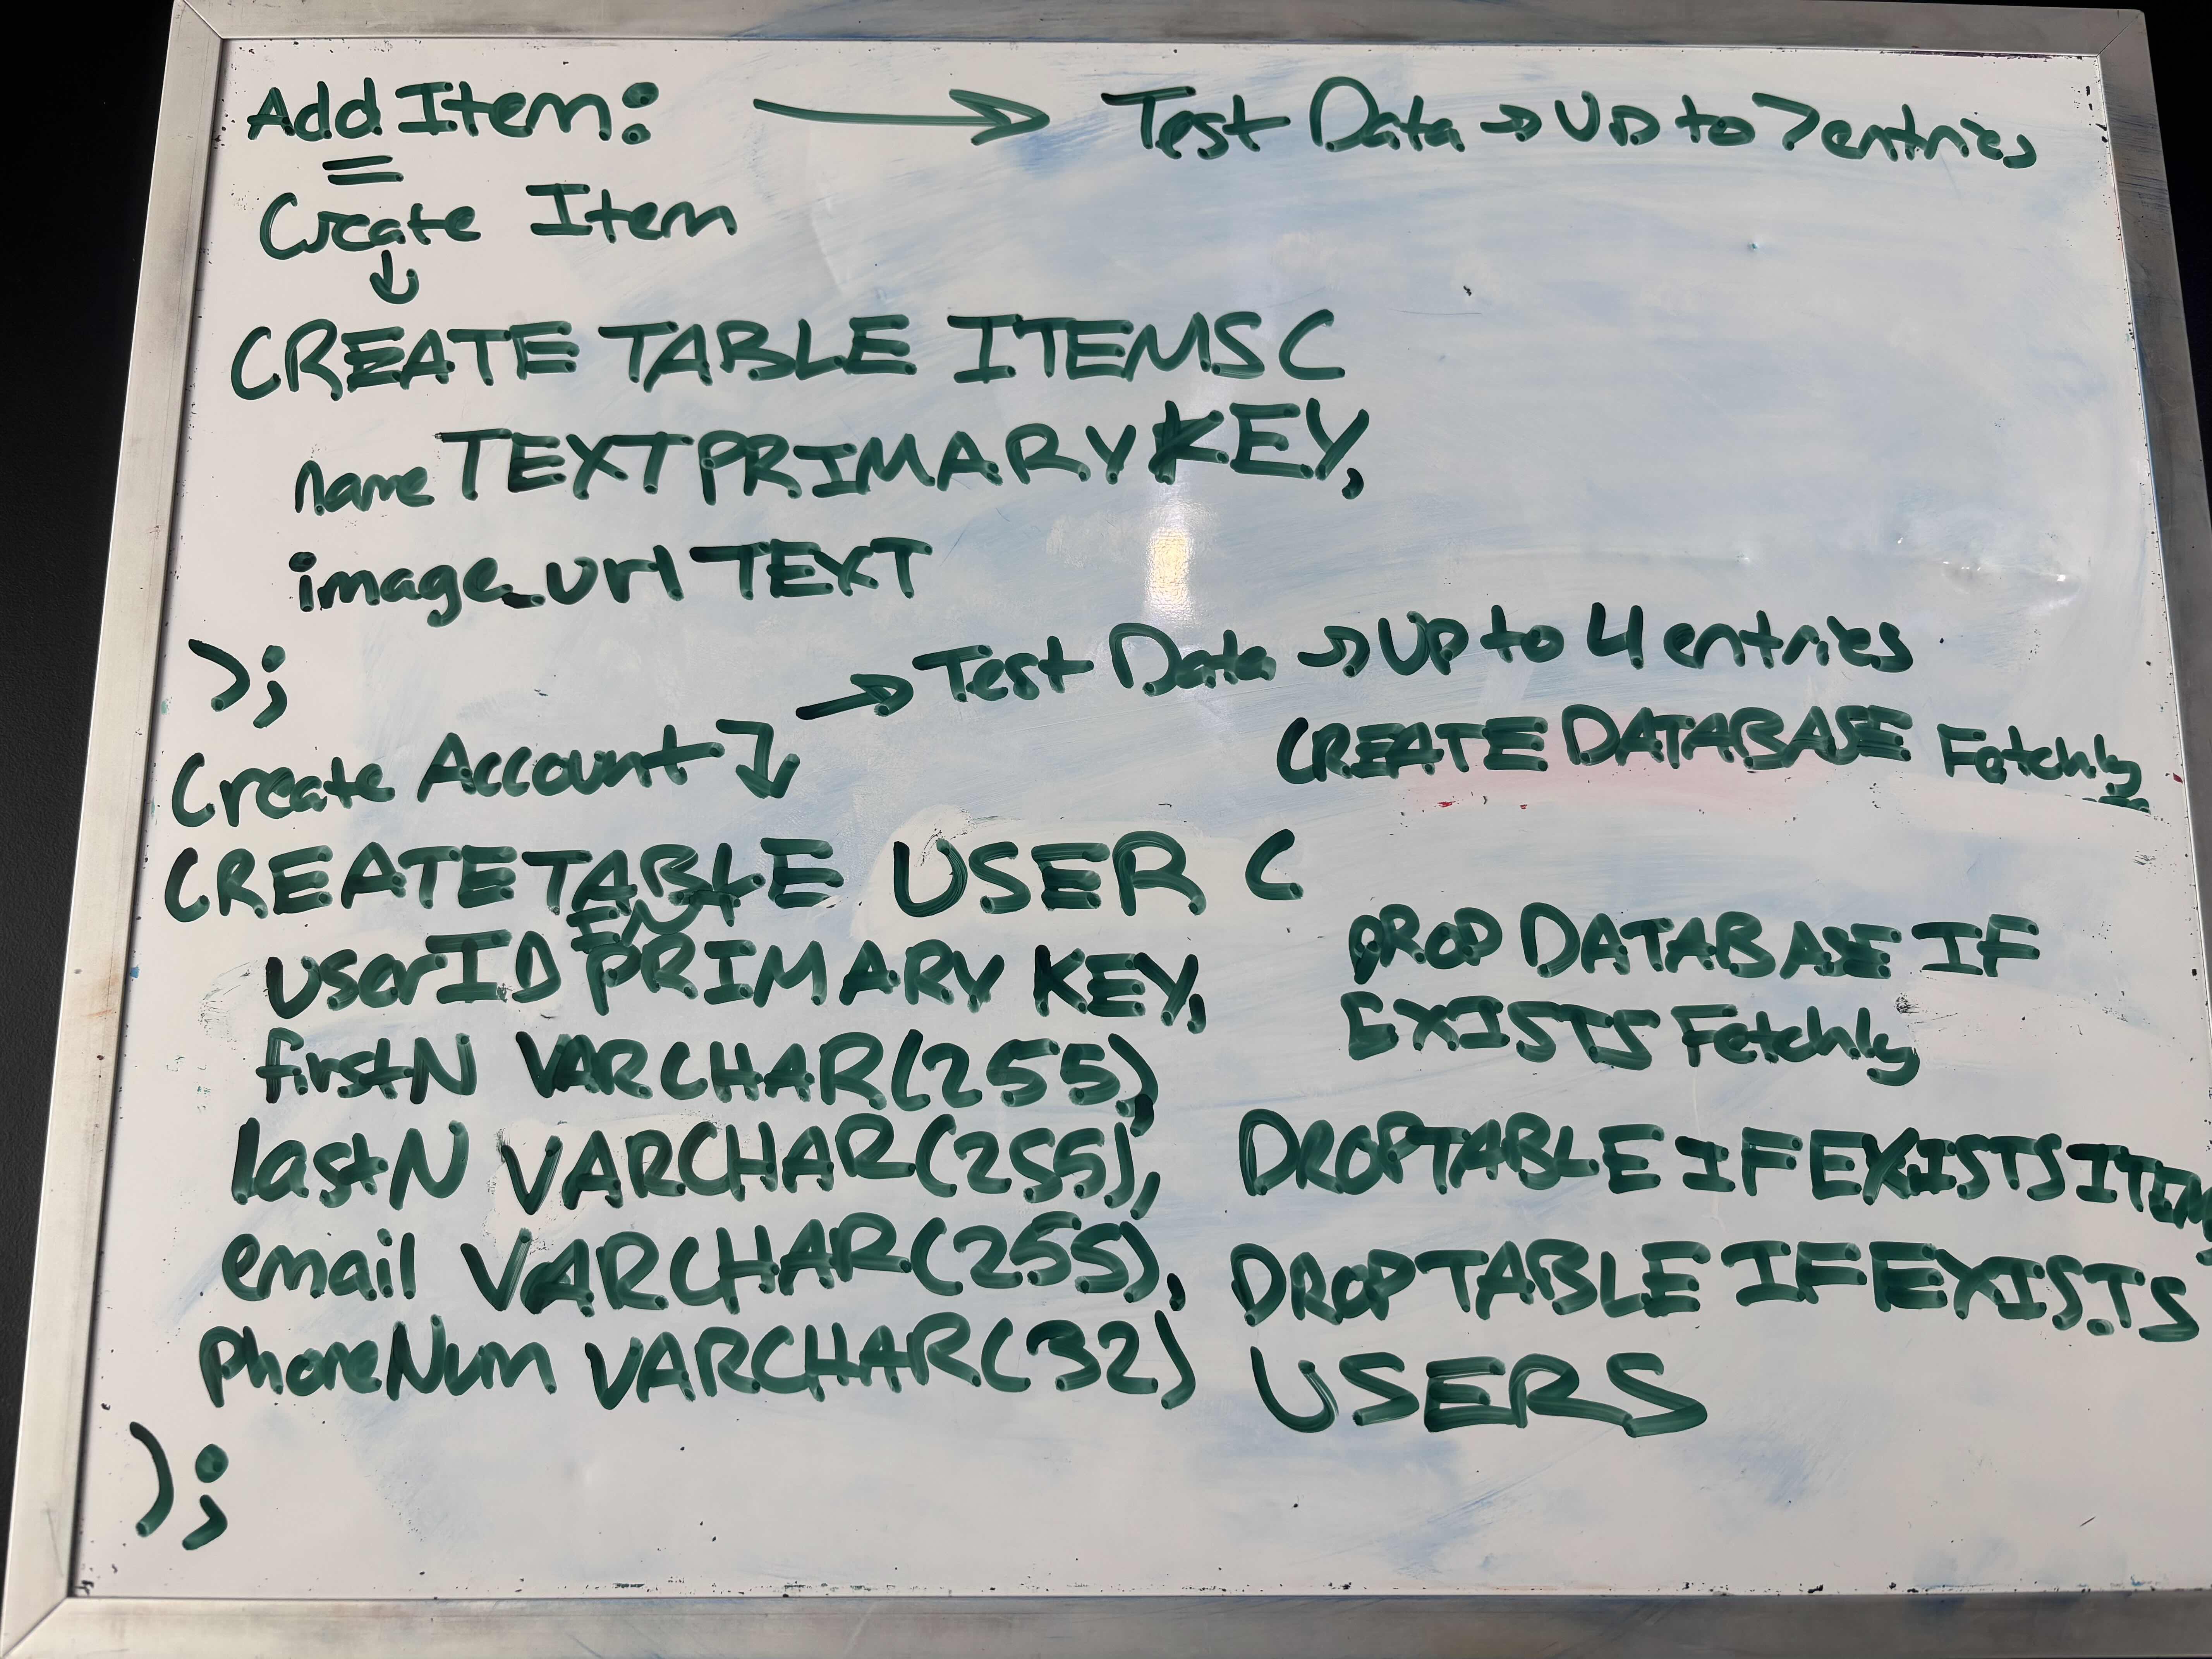 Add Item: → Test Data → Up to 7 entries
Create Item
↓
CREATE TABLE ITEMS (
name TEXT PRIMARY KEY,
image_url TEXT
);
→ Test Data → Up to 4 entries
Create Account ↓
CREATE TABLE USER (
INT
userID PRIMARY KEY,
firstN VARCHAR(255),
lastN VARCHAR(255),
email VARCHAR(255),
phoneNum VARCHAR(32)
);
CREATE DATABASE Fetchly
DROP DATABASE IF
EXISTS Fetchly
DROP TABLE IF EXISTS ITEMS
DROP TABLE IF EXISTS
USERS